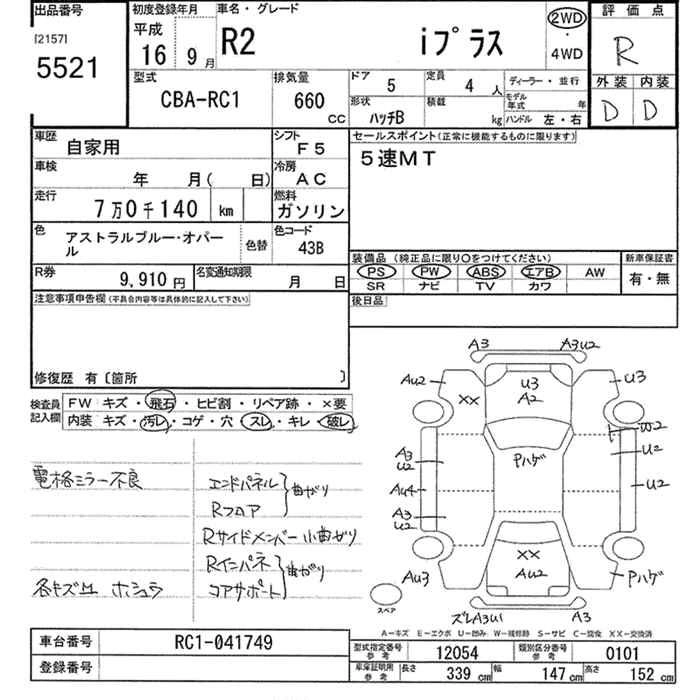 出品番号
[2157]
5521
初度登録年月
平成
16 9月
車名・グレード
R2 iプラス
2WD
・
4WD
評価点
R
外装 内装
D D
型式
CBA-RC1
排気量
660 CC
ドア 5
定員 4人
形状 ハッチB
積載 kg
ディーラー・並行
モデル年式 年
ハンドル 左・右
車歴 自家用
シフト F5
車検 年 月( 日)
冷房 AC
走行 7万0千140 km
燃料 ガソリン
色 アストラルブルー・オパール
色替
色コード 43B
R券 9,910円
名変通知期限 月 日
セールスポイント(正常に機能するものに限ります)
5速MT
装備品(純正品に限り○をつけてください)
PS PW ABS エアB AW
SR ナビ TV カワ
新車保証書
有・無
後日品
注意事項申告欄(不具合内容等は具体的に記入して下さい)
修復歴 有〔箇所 〕
検査員記入欄
FW キズ・飛石・ヒビ割・リペア跡・×要
内装 キズ・汚レ・コゲ・穴・スレ・キレ・破レ
電格ミラー不良
エンドパネル
Rフロア
曲がり
Rサイドメンバー 小曲がり
Rインパネ
コアサポート
曲がり
各キズ凹 ホシュラ
A3 A3U2
AU2 XX U3 A2 U3
W2
A3 U2 Pハゲ U2
AU4 U2
A3 U2
XX
AU3 AU2 Pハゲ
スペア
ズレA3U1 A3
A-キズ E-エクボ U-凹み W-補修跡 S-サビ C-腐食 XX-交換済
車台番号 RC1-041749
登録番号
型式指定番号 参考 12054
類別区分番号 参考 0101
車庫証明用 参考 長さ 339cm 幅 147cm 高さ 152cm